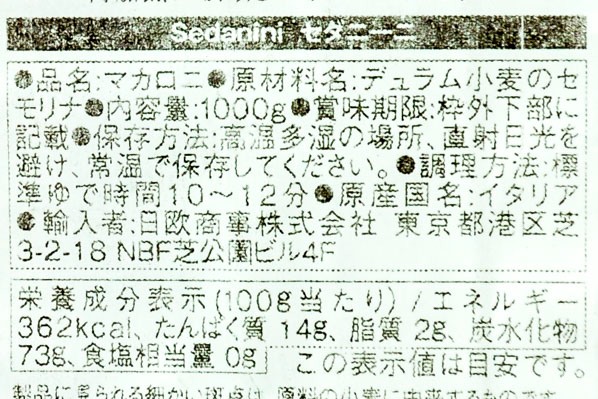 Sedanini セダニーニ
●品名:マカロニ●原材料名:デュラム小麦のセ
モリナ●内容量:1000g●賞味期限:枠外下部に
記載●保存方法:高温多湿の場所、直射日光を
避け、常温で保存してください。●調理方法:標
準ゆで時間10〜12分●原産国名:イタリア
●輸入者:日欧商事株式会社 東京都港区芝
3-2-18 NBF芝公園ビル4F
栄養成分表示(100g当たり)/エネルギー
362kcal、たんぱく質 14g、脂質 2g、炭水化物
73g、食塩相当量 0g この表示値は目安です。
製品に見られる細かい斑点は、原料の小麦に由来するものです